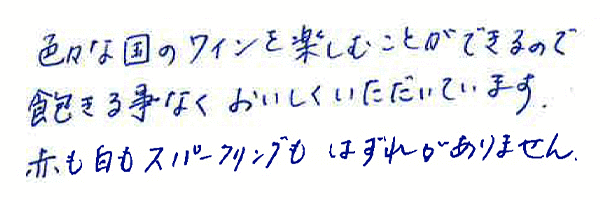 色々な国のワインを楽しむことができるので
飽きる事なくおいしくいただいています.
赤も白もスパークリングもはずれがありません.